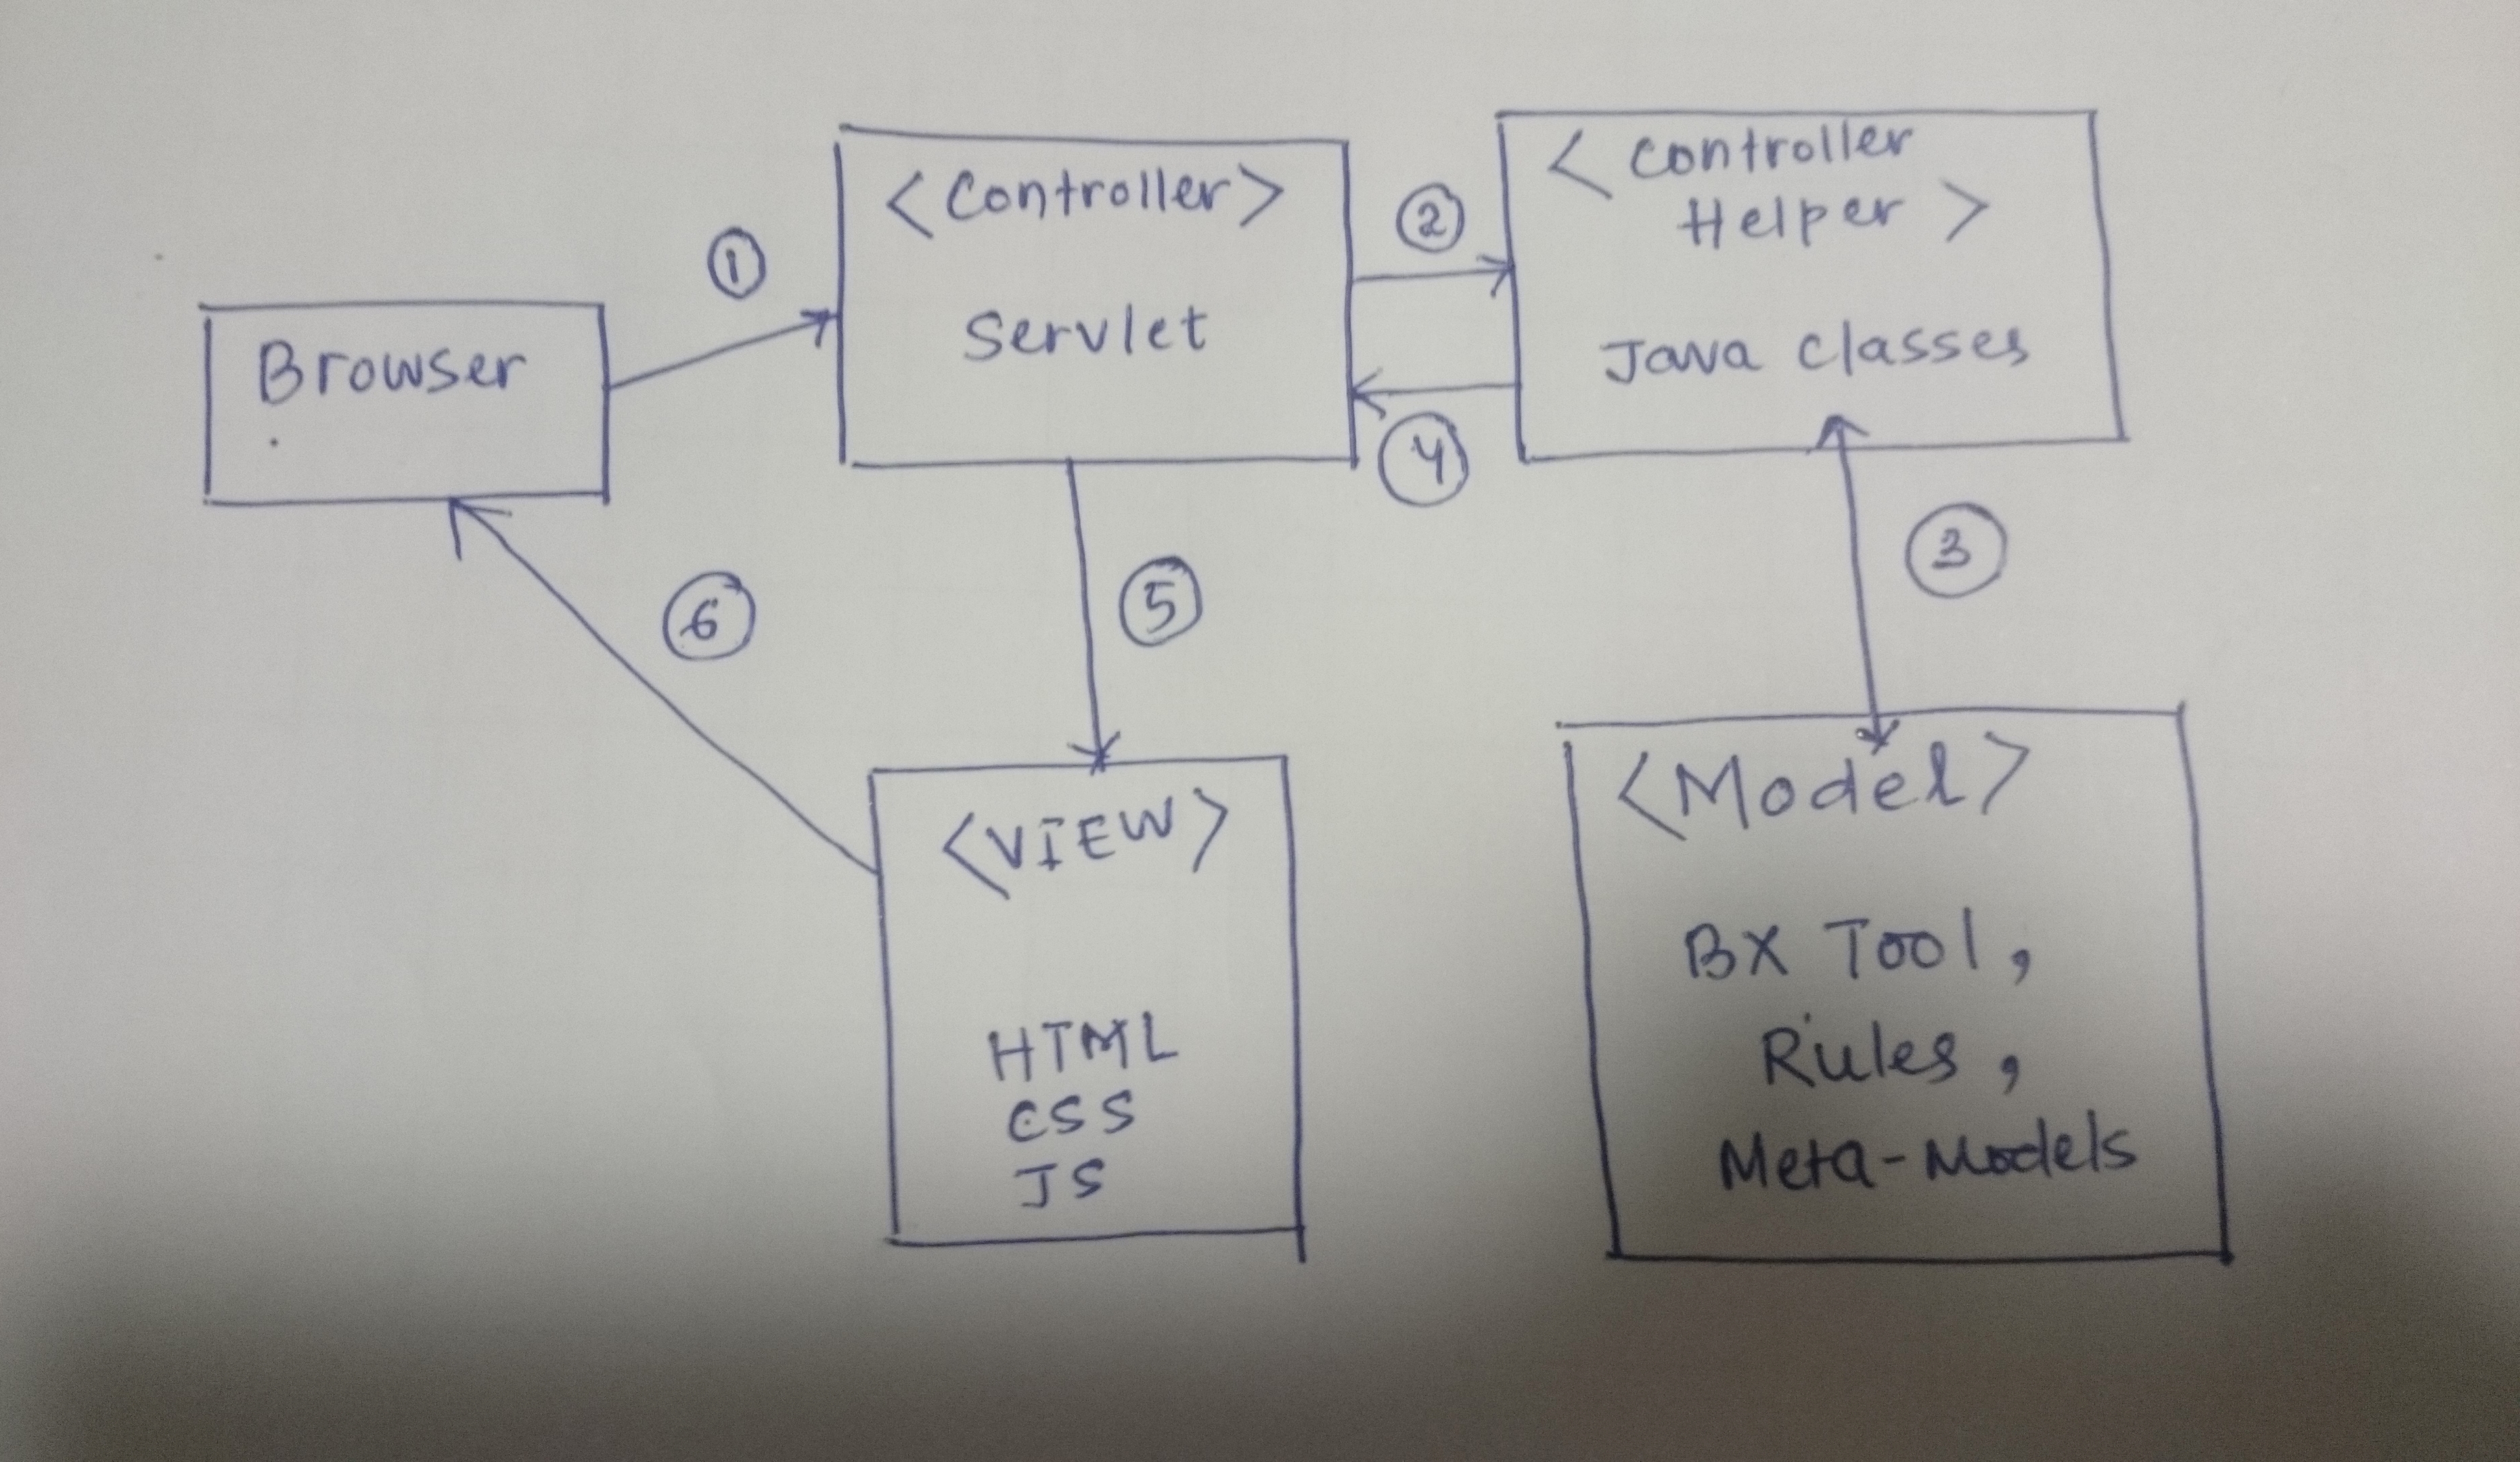 Browser
①
<Controller>
Servlet
②
④
<controller
Helper>
Java classes
③
⑤
⑥
<VIEW>
HTML
CSS
JS
<Model>
BX Tool,
Rules,
Meta-Models